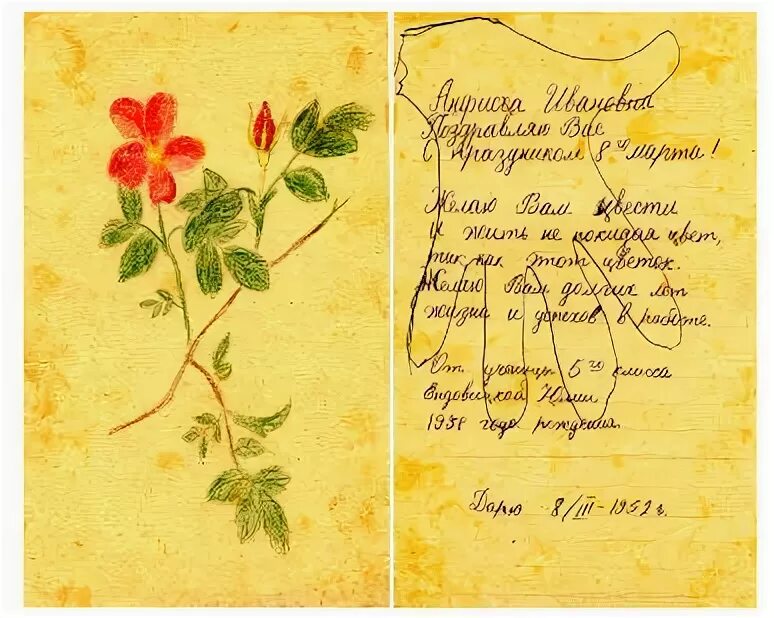 Ивановна
Поздравляю Вас
с праздником 8го марта!
Желаю Вам цвести
и жить не покидая цвет,
так как этот цветок.
Желаю Вам долгих лет
жизни и успехов в работе.
От ученицы 5го класса
Юлии
года рождения.
Дарю 8/III-1952 г.